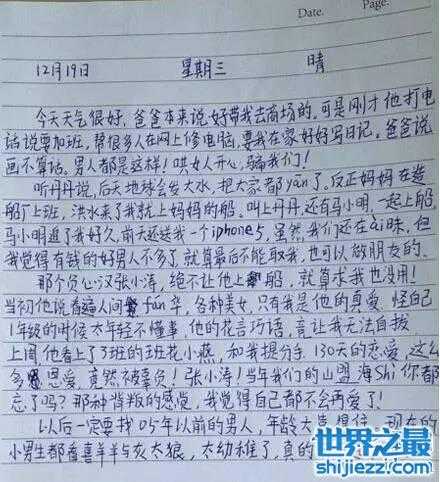 Date.
Page.
12月19日 星期三 晴
今天天气很好,爸爸本来说好带我去商场的,可是刚才他打电
话说要加班,帮很多人在网上修电脑,要我在家好好写日记。爸爸说
画不算话。男人都是这样!哄女人开心,骗我们!
听丹丹说,后天地球会发大水,把大家都yān了,反正妈妈在造
船厂上班,洪水来了我就上妈妈的船。叫上丹丹,还有马小明,一起上船,
马小明追了我好久,前天还送我一个iphone5,虽然我们还在ài昧,但
我觉得有钱的好男人不多了,就算最后不能取我,也可以做朋友的。
那个负心汉张小涛,绝不让他上船,就算求我也没用!
当初他说看遍人间fán华,各种美女,只有我是他的真爱,怪自己
1年级的时候太年轻不懂事,他的花言巧语,竟让我无法自拔
上周他看上了3班的班花小燕,和我提分手,130天的恋爱,这么
多恩爱,竟然被辜负!张小涛!当年我们的山盟海Shi你都
忘了吗?那种背叛的感觉,我觉得自己都不会再爱了!
以后一定要找05年以前的男人,年龄大
小男生都看喜羊羊与灰太狼,太幼稚了,真的
世界之最
shijiezz.com